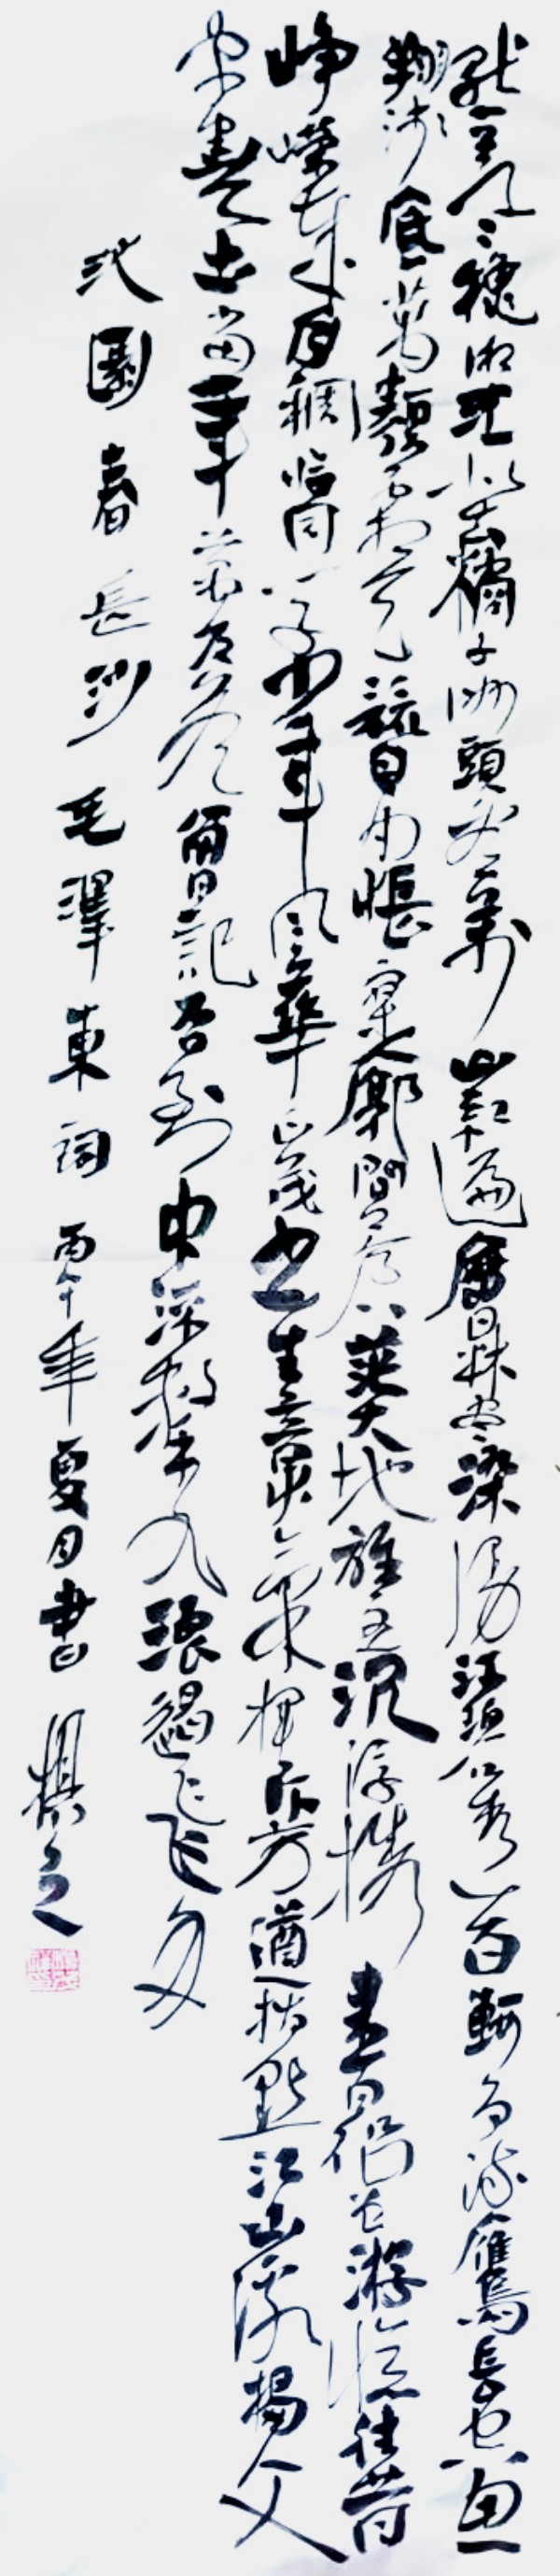 獨立寒秋湘江北去橘子洲頭看萬山紅遍層林盡染漫江碧透百舸爭流鷹擊長空魚
翔淺底萬類霜天競自由悵寥廓問蒼茫大地誰主沉浮攜來百侣曾游憶往昔
崢嶸歲月稠恰同學少年風華正茂書生意氣揮斥方遒指點江山激揚文
字糞土當年萬户侯曾記否到中流擊水浪遏飛舟
沁園春長沙毛澤東詞丙午年夏日書